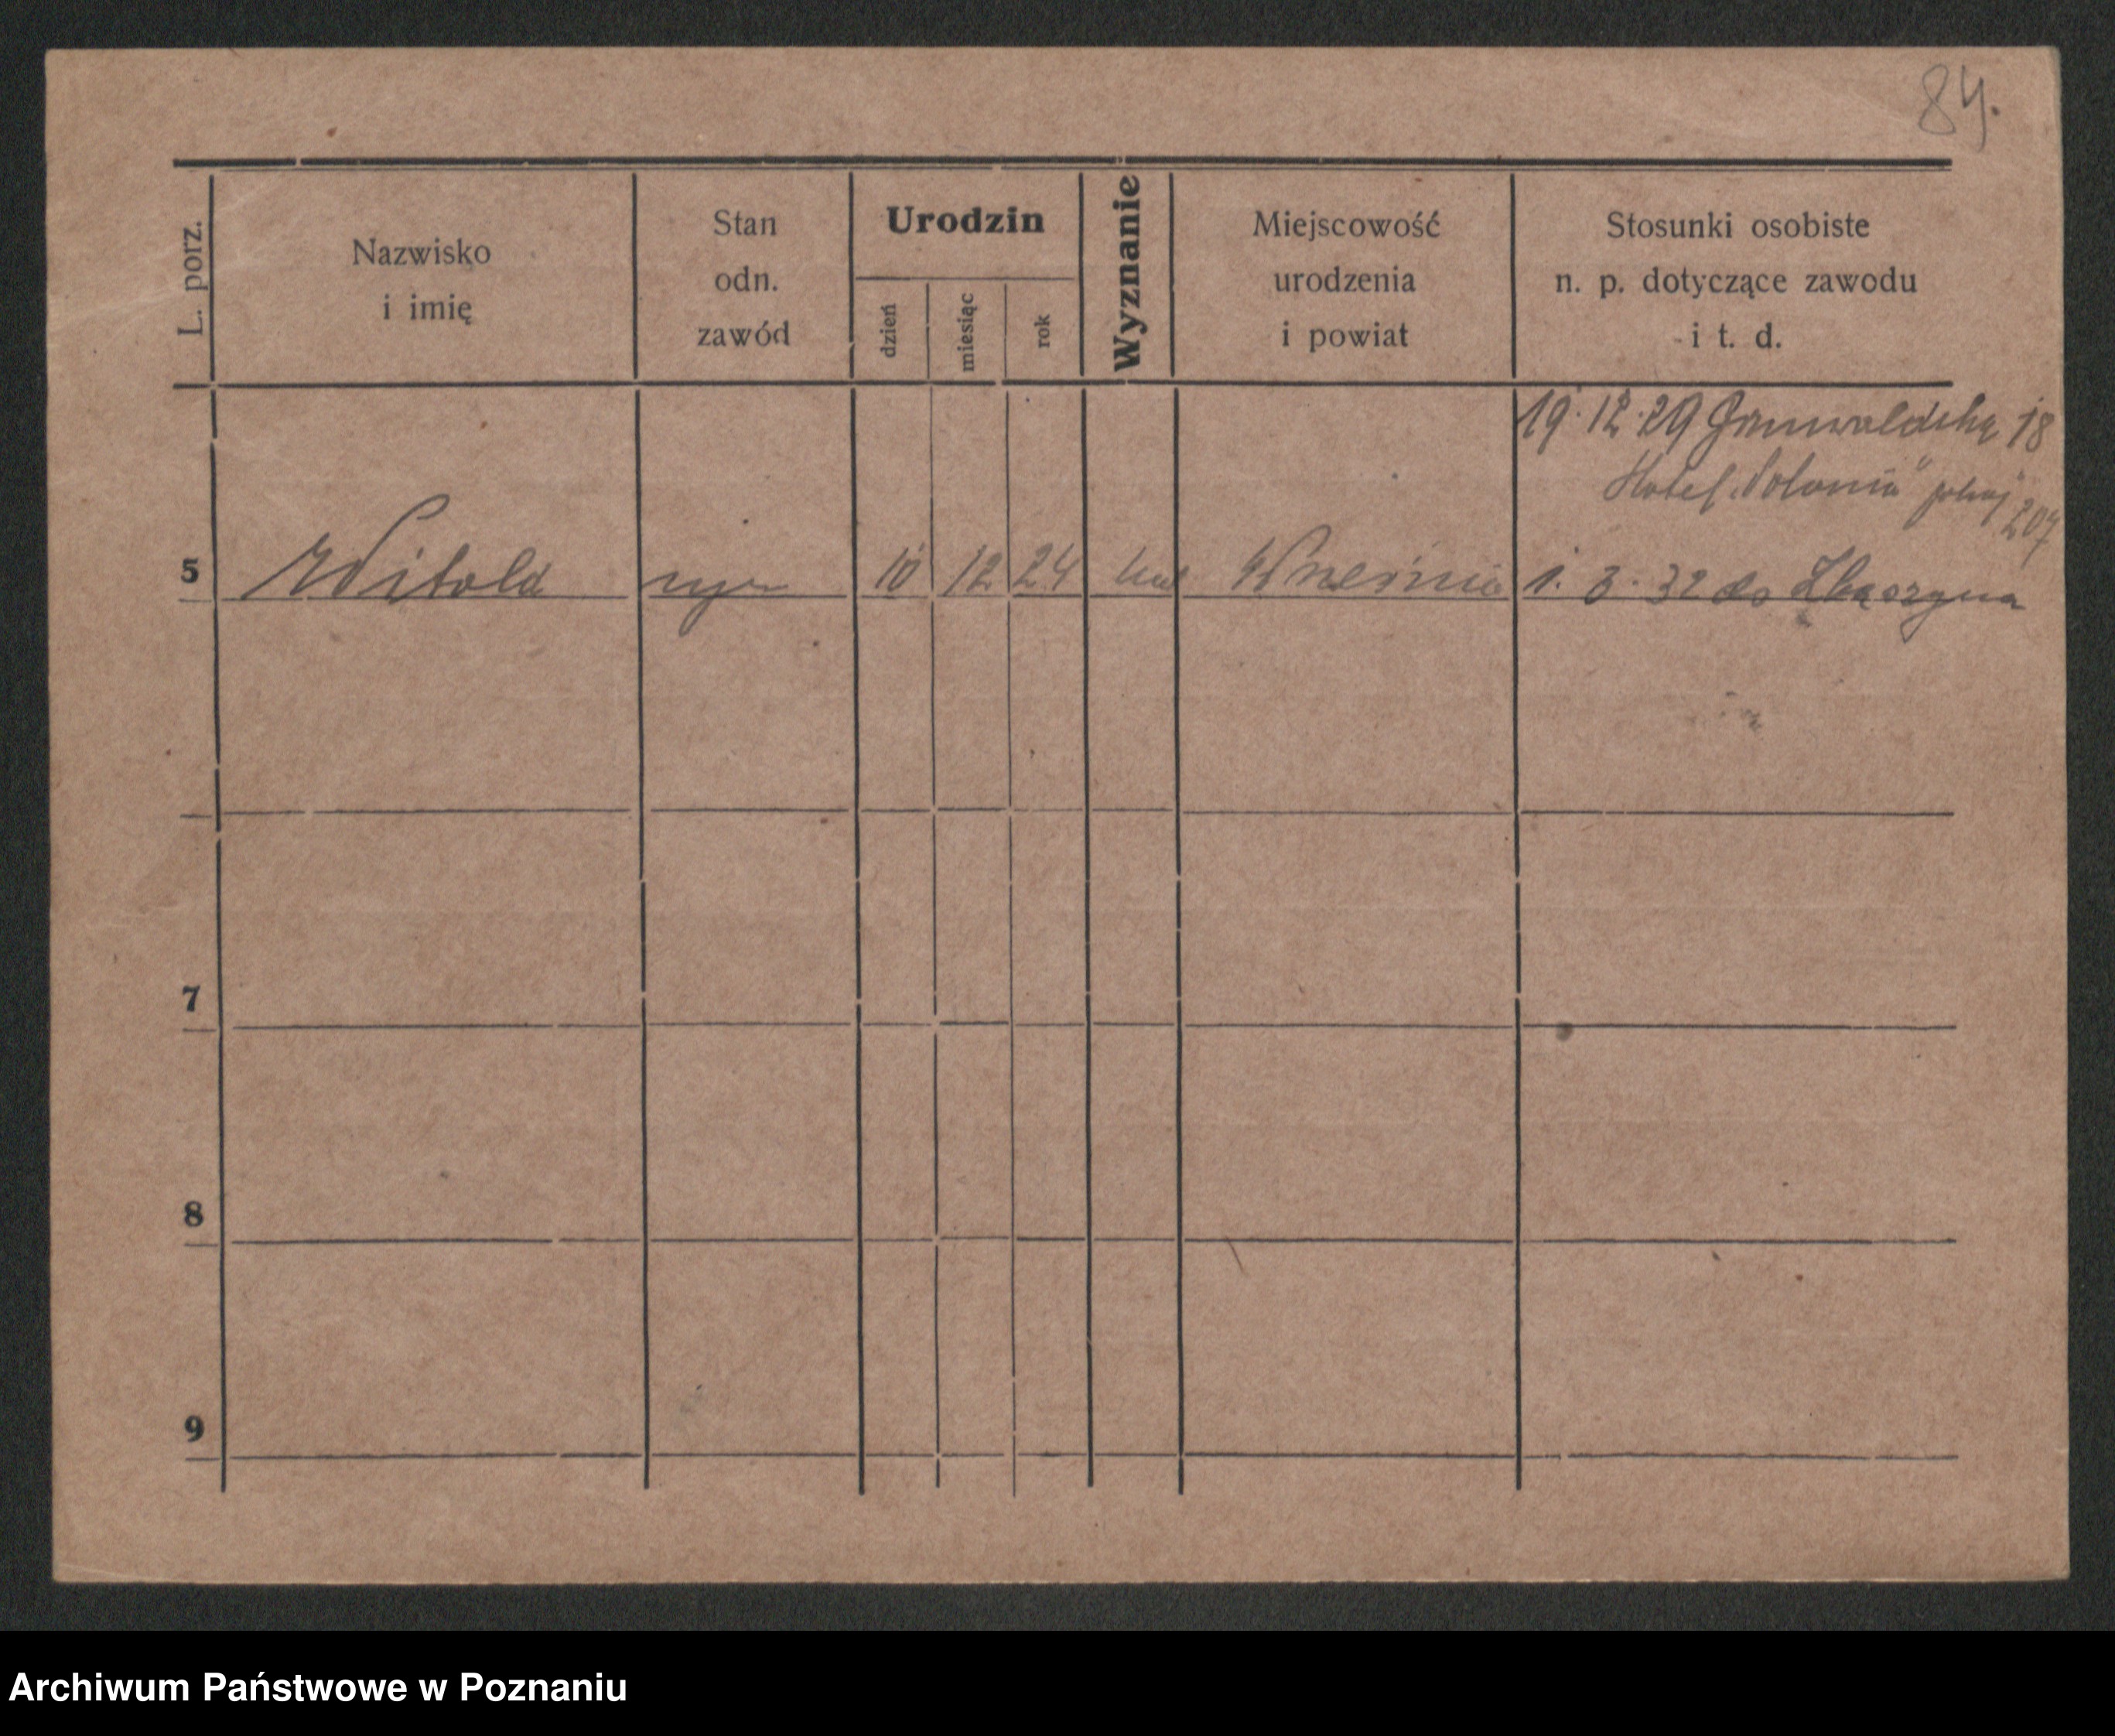 84.
L. porz.
Nazwisko
i imię
Stan
odn.
zawód
Urodzin
dzień
miesiąc
rok
Wyznanie
Miejscowość
urodzenia
i powiat
Stosunki osobiste
n. p. dotyczące zawodu
i t. d.
19.12.29 Grunwaldska 18
Hotel "Polonia" pokoj 207
5 Witold syn 10 12 24 kat Września 1. 3. 32 do Zbąszyna
7
8
9
Archiwum Państwowe w Poznaniu